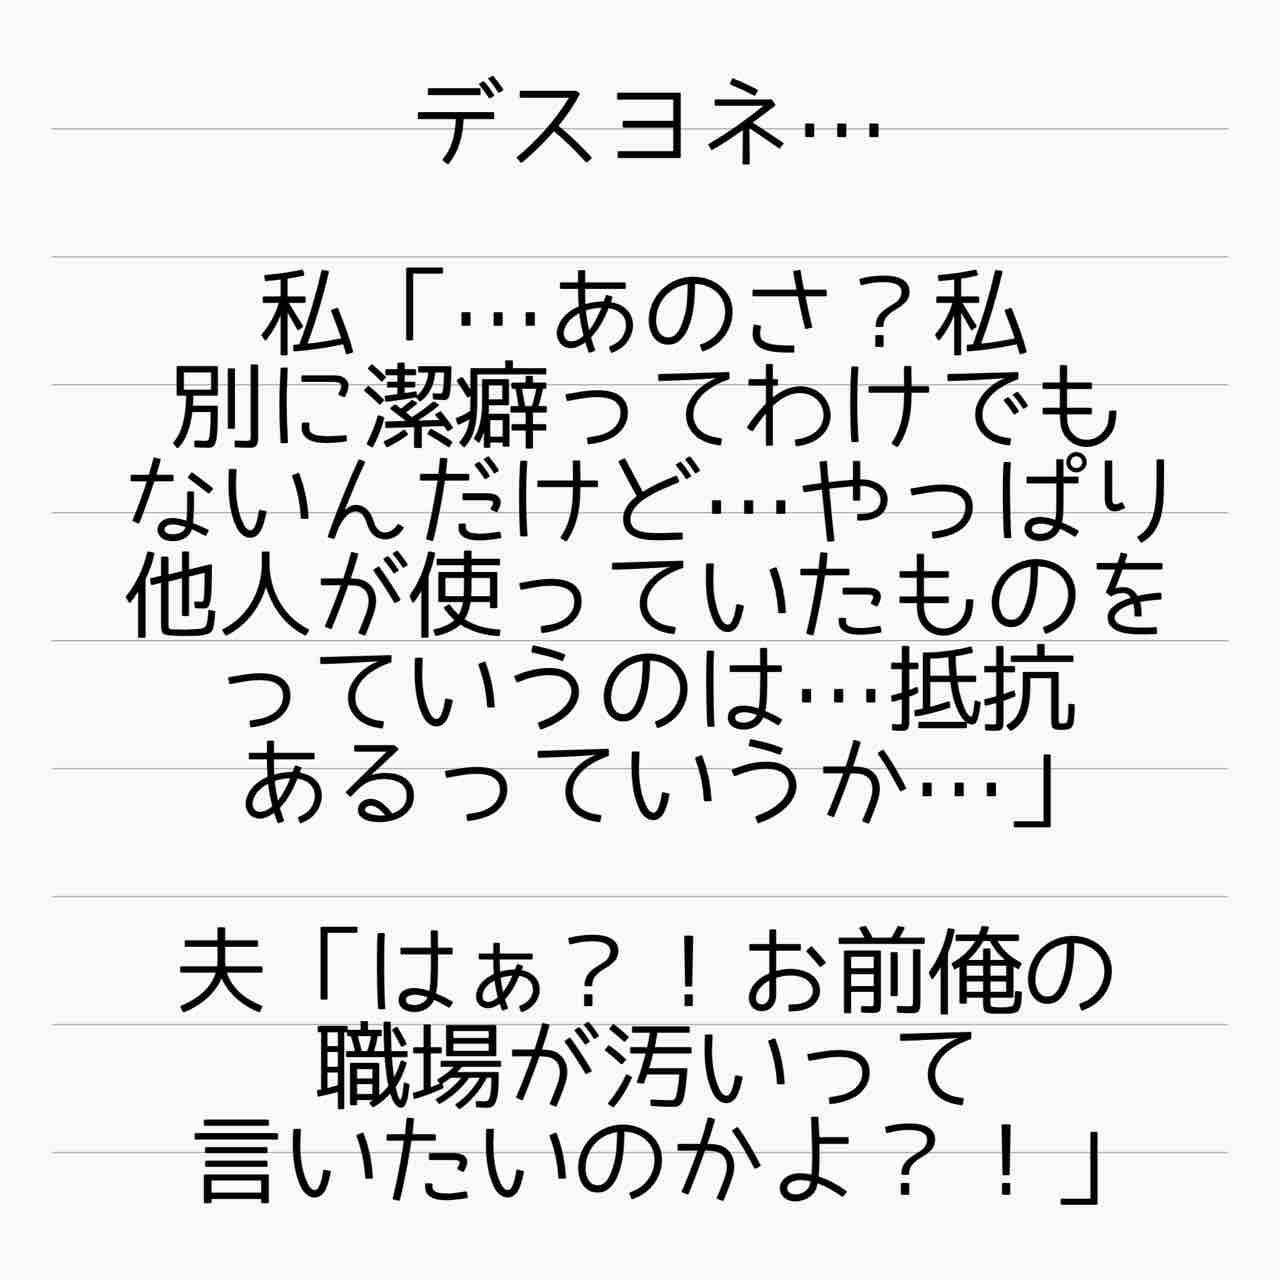 デスヨネ…
私「…あのさ？私
別に潔癖ってわけでも
ないんだけど…やっぱり
他人が使っていたものを
っていうのは…抵抗
あるっていうか…」
夫「はぁ？！お前俺の
職場が汚いって
言いたいのかよ？！」